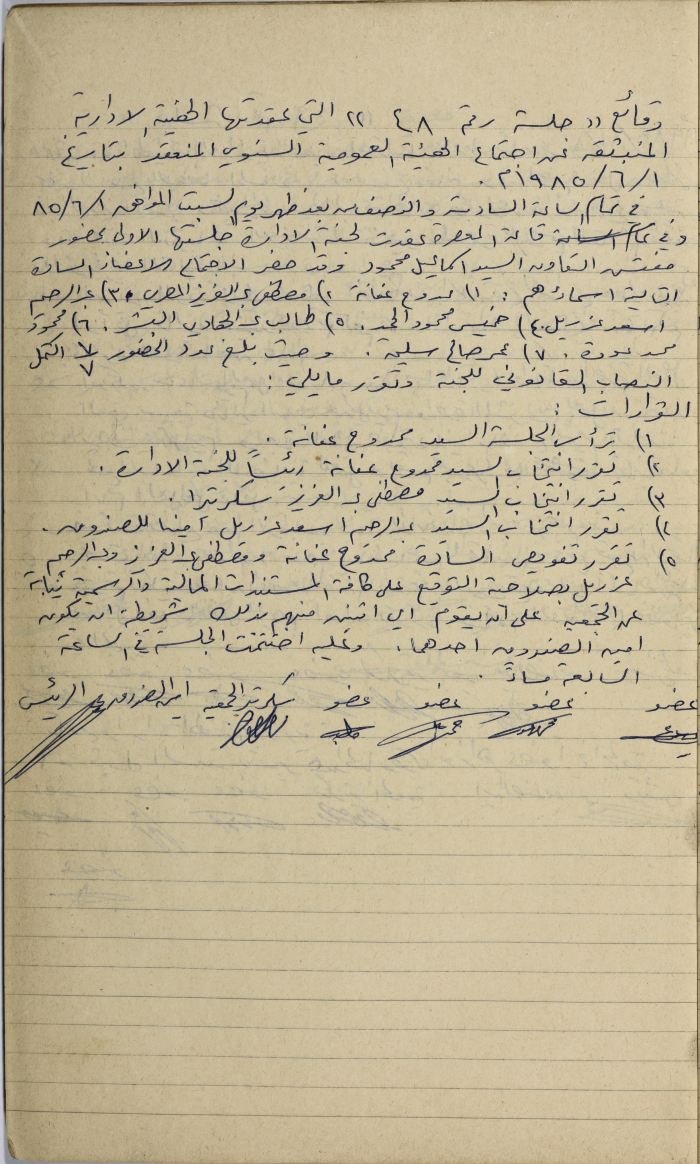 وقائع (( جلسة رقم ٤٨ )) التي عقدتها الهيئة الادارية
المنبثقه عن اجتماع الهيئة العمومية السنوي المنعقد بتاريخ
١/٦/١٩٨٥م .
في تمام الساعة السادسة والنصف من بعد ظهر يوم السبت الموافق ٨٥/٦/١
وفي قاعة عقدت لجنة الادارة جلستها الاولى بحضور
مفتش التعاون السيد اسماعيل محمود وقد حضر الاجتماع الاعضاء السادة
التالية اسماءهم : ١) ممدوح عنانة ٢) مصطفى عبد العزيز المصري ٣) عبد الرحيم
اسعد عزريل ٤) خميس محمود الحمد . ٥) طالب عبد الهادي . ٦) محمود
محمد عودة . ٧) عمر صالح سليمة . وحيث بلغ عدد الحضور ٧/٧ اكتمل
النصاب القانوني للجنة وتقرر مايلي :
القرارات :
١) ترأس الجلسة السيد ممدوح عنانة .
٢) تقرر انتخاب السيد ممدوح عنانة رئيساً للجنة الادارة .
٣) تقرر انتخاب السيد مصطفى عبد العزيز سكرتيرا .
٤) تقرر انتخاب السيد عبد الرحيم اسعد عزريل امينا للصندوق .
٥) تقرر تفويض السادة ممدوح عنانة ومصطفى عبد العزيز وعبد الرحيم
عزريل بصلاحية التوقيع على كافة المستندات المالية والرسمية نيابة
عن الجمعيه على ان يقوم اي اثنين منهم بذلك شريطة ان يكون
امين الصندوق احدهما . وعليه اختتمت الجلسة في الساعة
السابعة مساءً .
عضو عضو عضو عضو سكرتير الجمعية امين الصندوق الرئيس